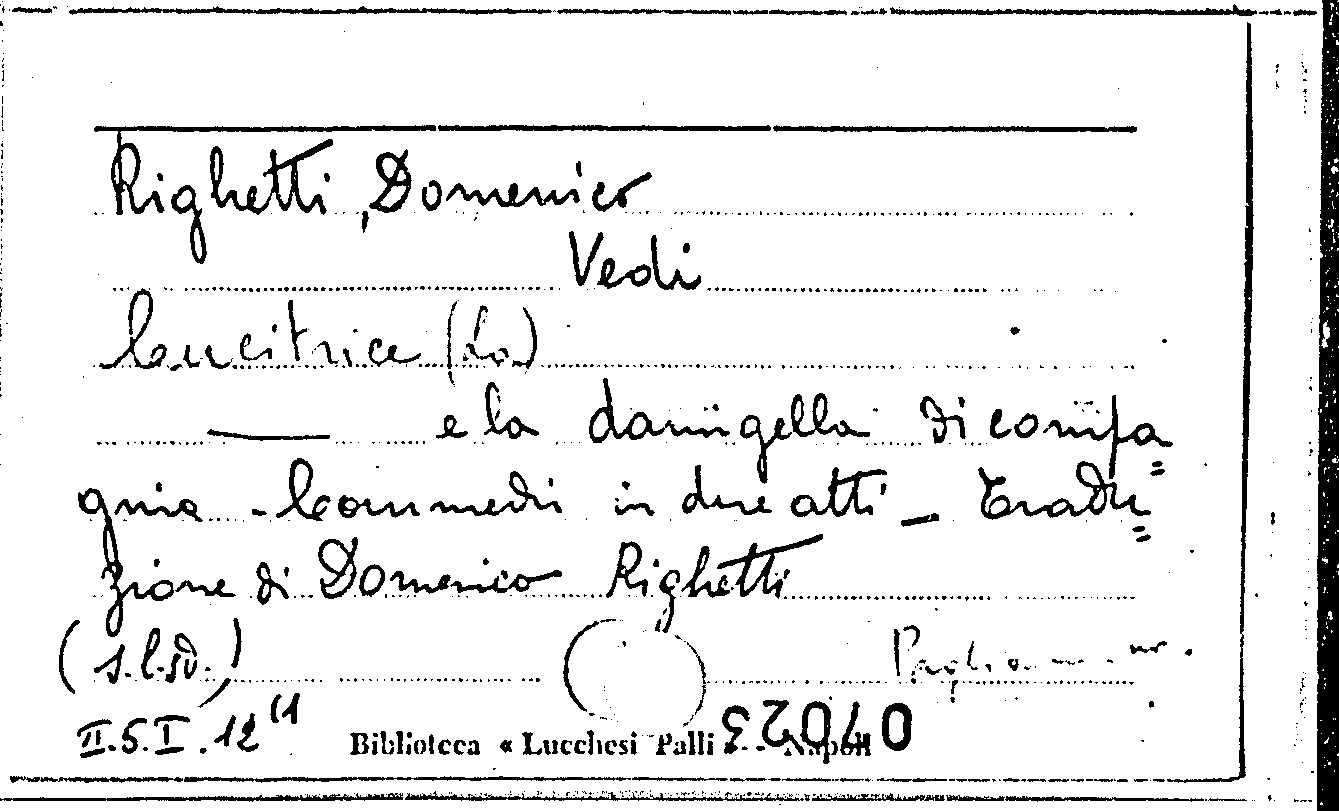 Righetti, Domenico
Vedi
Cucitrice (La)
e la damigella di compa=
gnia - Commedi in due atti - Tradu=
zione di Domenico Righetti
(s.l.sd.)
II.5.I.12 (1
Biblioteca « Lucchesi Palli » - Napoli